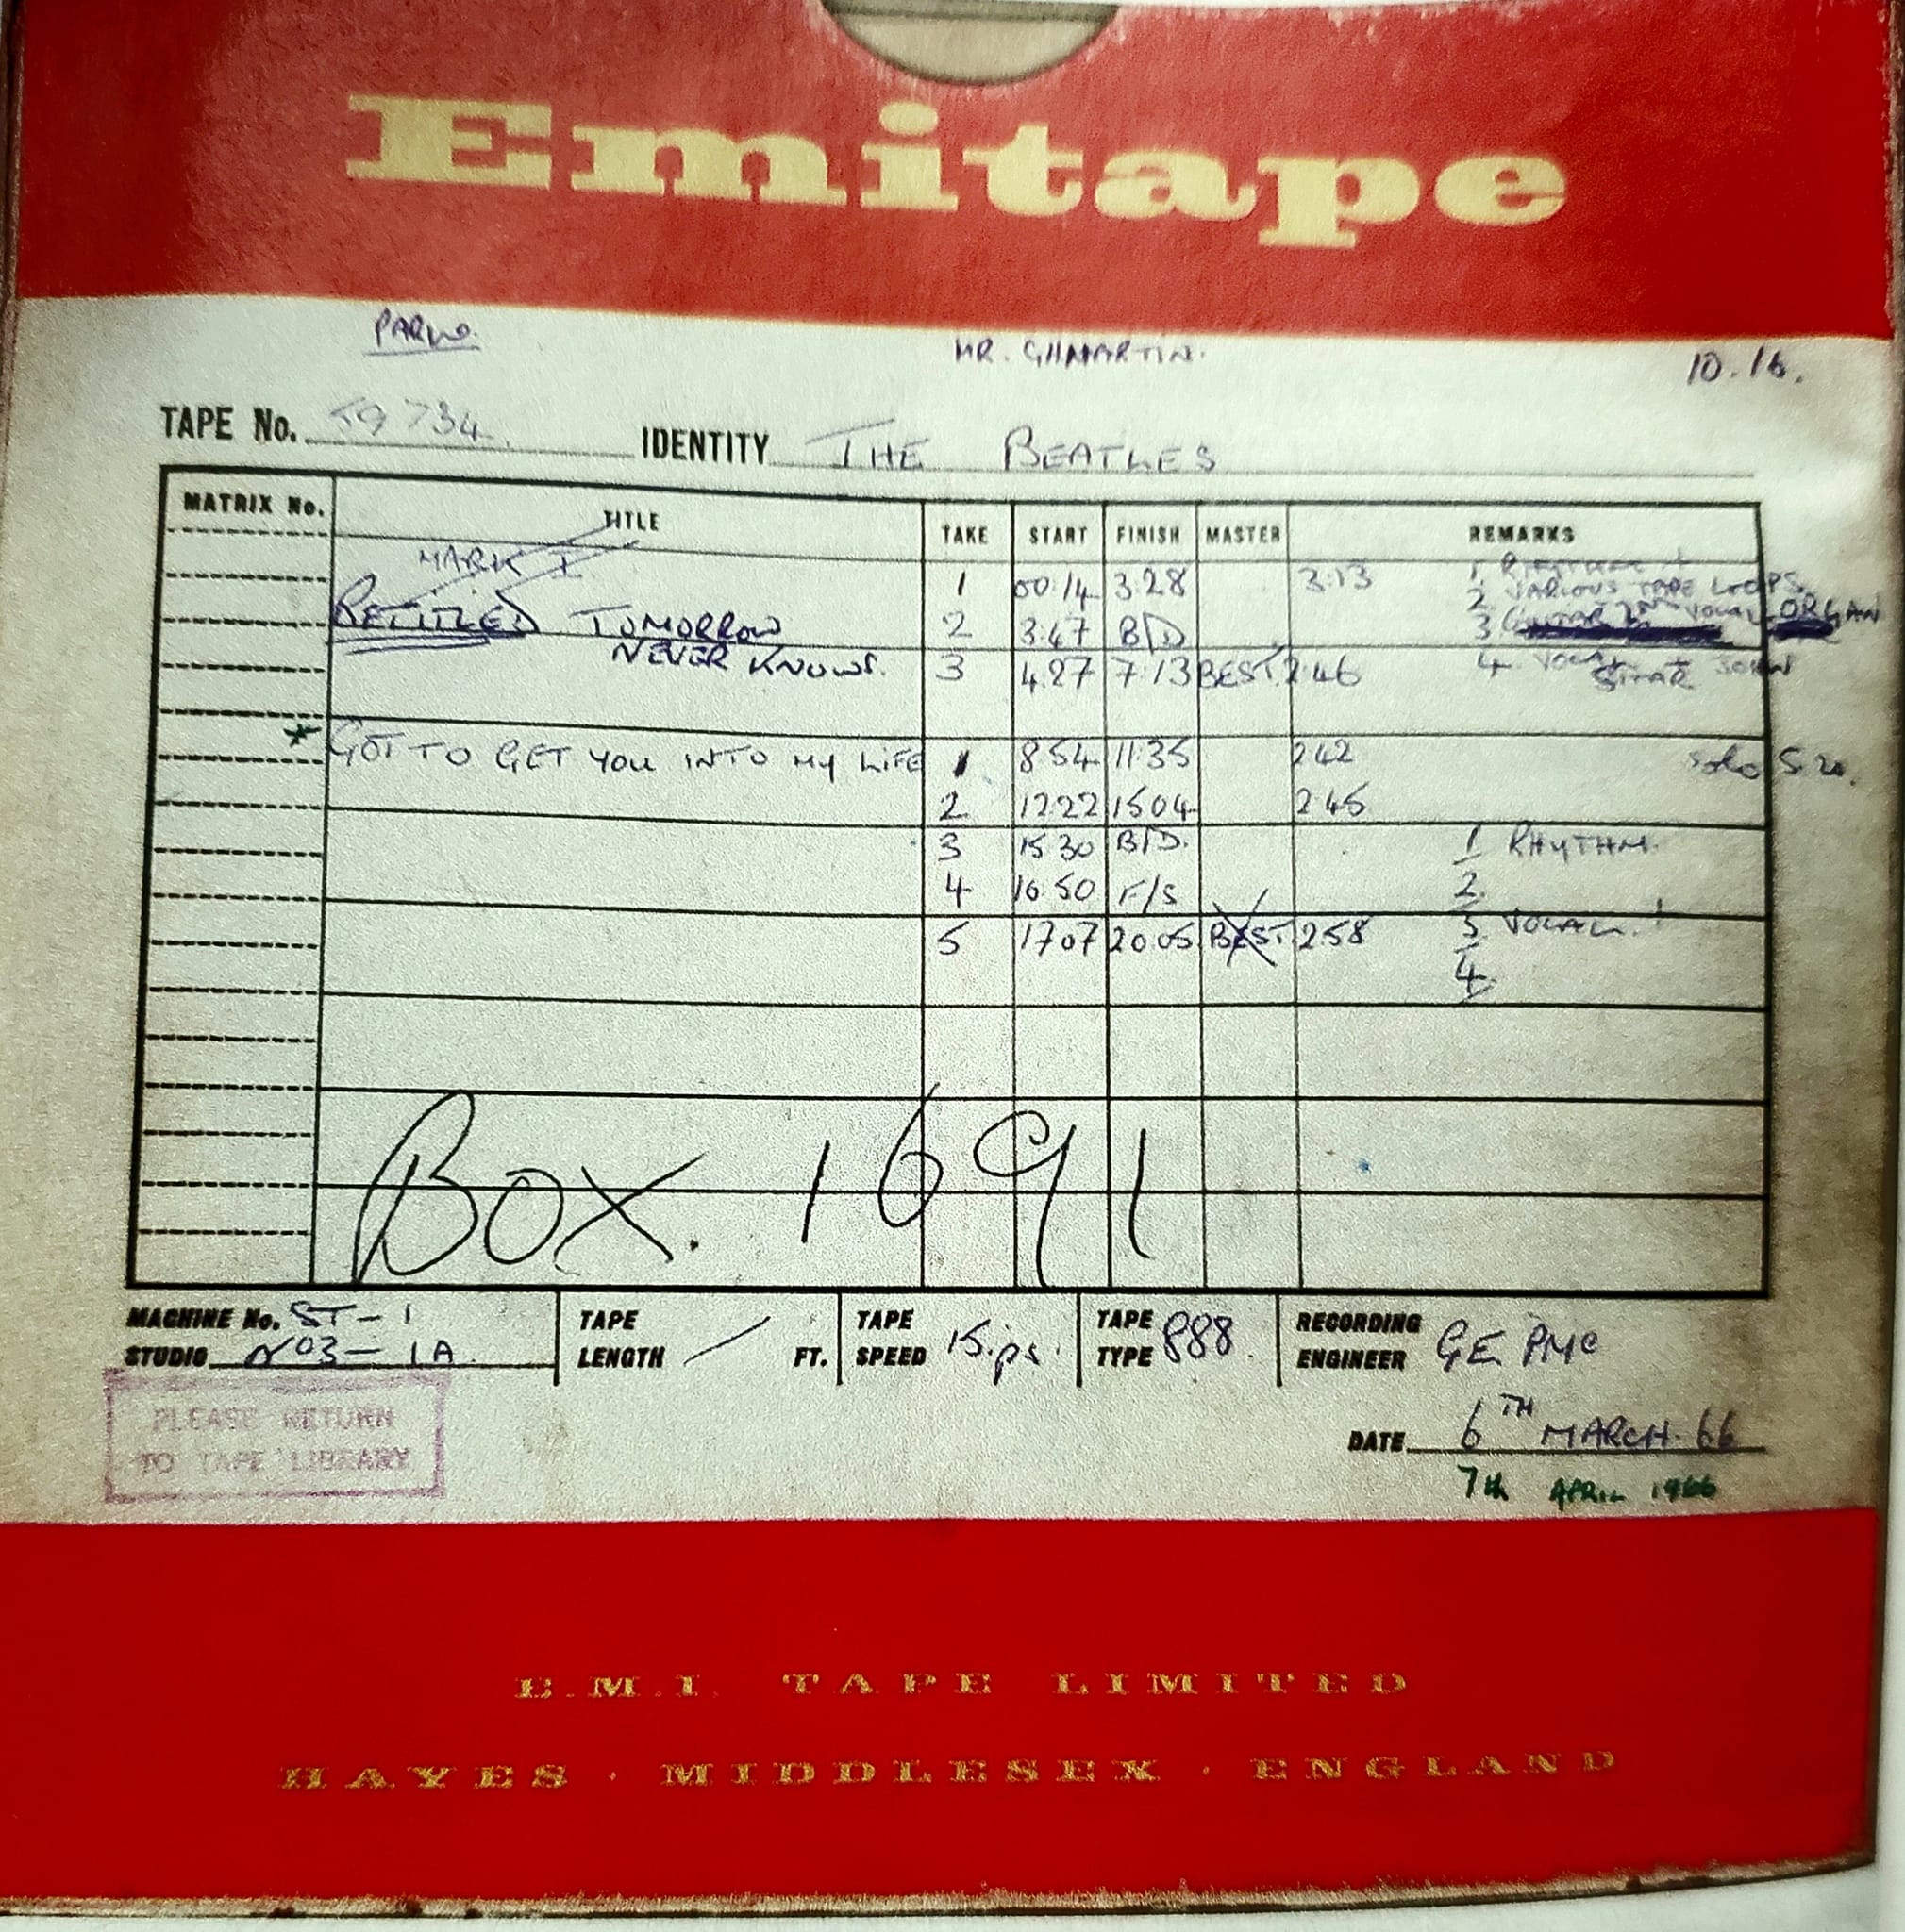 Emitape
PARLO.
MR. GHMARTIN.
10.16.
TAPE No. 59734 IDENTITY THE BEATLES
MATRIX No. TITLE TAKE START FINISH MASTER REMARKS
MARK I 1 00.14 3.28 3.13 1. RHYTHM +
2. VARIOUS TAPE LOOPS
RETITLED TOMORROW 2 3.47 B/D 3 GUITAR 2ND VOCAL ORGAN
NEVER KNOWS. 3 4.27 7.13 BEST. 2.46 4. VOCAL + JOHN
SITAR
* GOT TO GET YOU INTO MY LIFE 1 8 54 11.35 2 42 solo
2 12.22 15 04 2 45
3 15 30 B/D. 1 RHYTHM.
4 16.50 F/S 2.
5 17 07 20 05 BEST. 2 58 3 VOCAL.
4.
BOX. 1691
MACHINE No. ST - 1
STUDIO NO3 - 1A
TAPE LENGTH / FT.
TAPE SPEED 15.ps.
TAPE TYPE 888.
RECORDING ENGINEER GE. PMC
PLEASE RETURN
TO TAPE LIBRARY
DATE 6TH MARCH. 66
7th APRIL 1966
E.M.I. TAPE LIMITED
HAYES · MIDDLESEX · ENGLAND